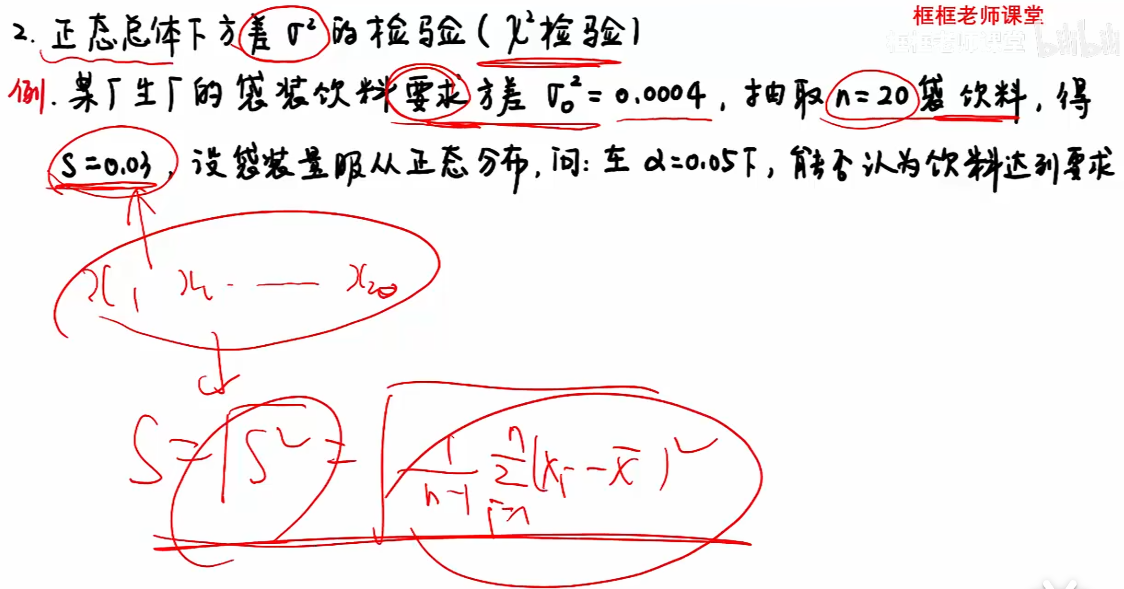 框框老师课堂
2. 正态总体下方差 σ² 的检验(χ²检验)
框框老师课堂 bilibili
例. 某厂生厂的袋装饮料要求方差 σ₀² = 0.0004, 抽取 n=20 袋饮料, 得
S=0.03, 设袋装量服从正态分布, 问: 在 α=0.05下, 能否认为饮料达到要求
x₁ x₂ ... — x₂₀
S = √S² = √(1/(n-1) Σ(xᵢ - x̄)²)